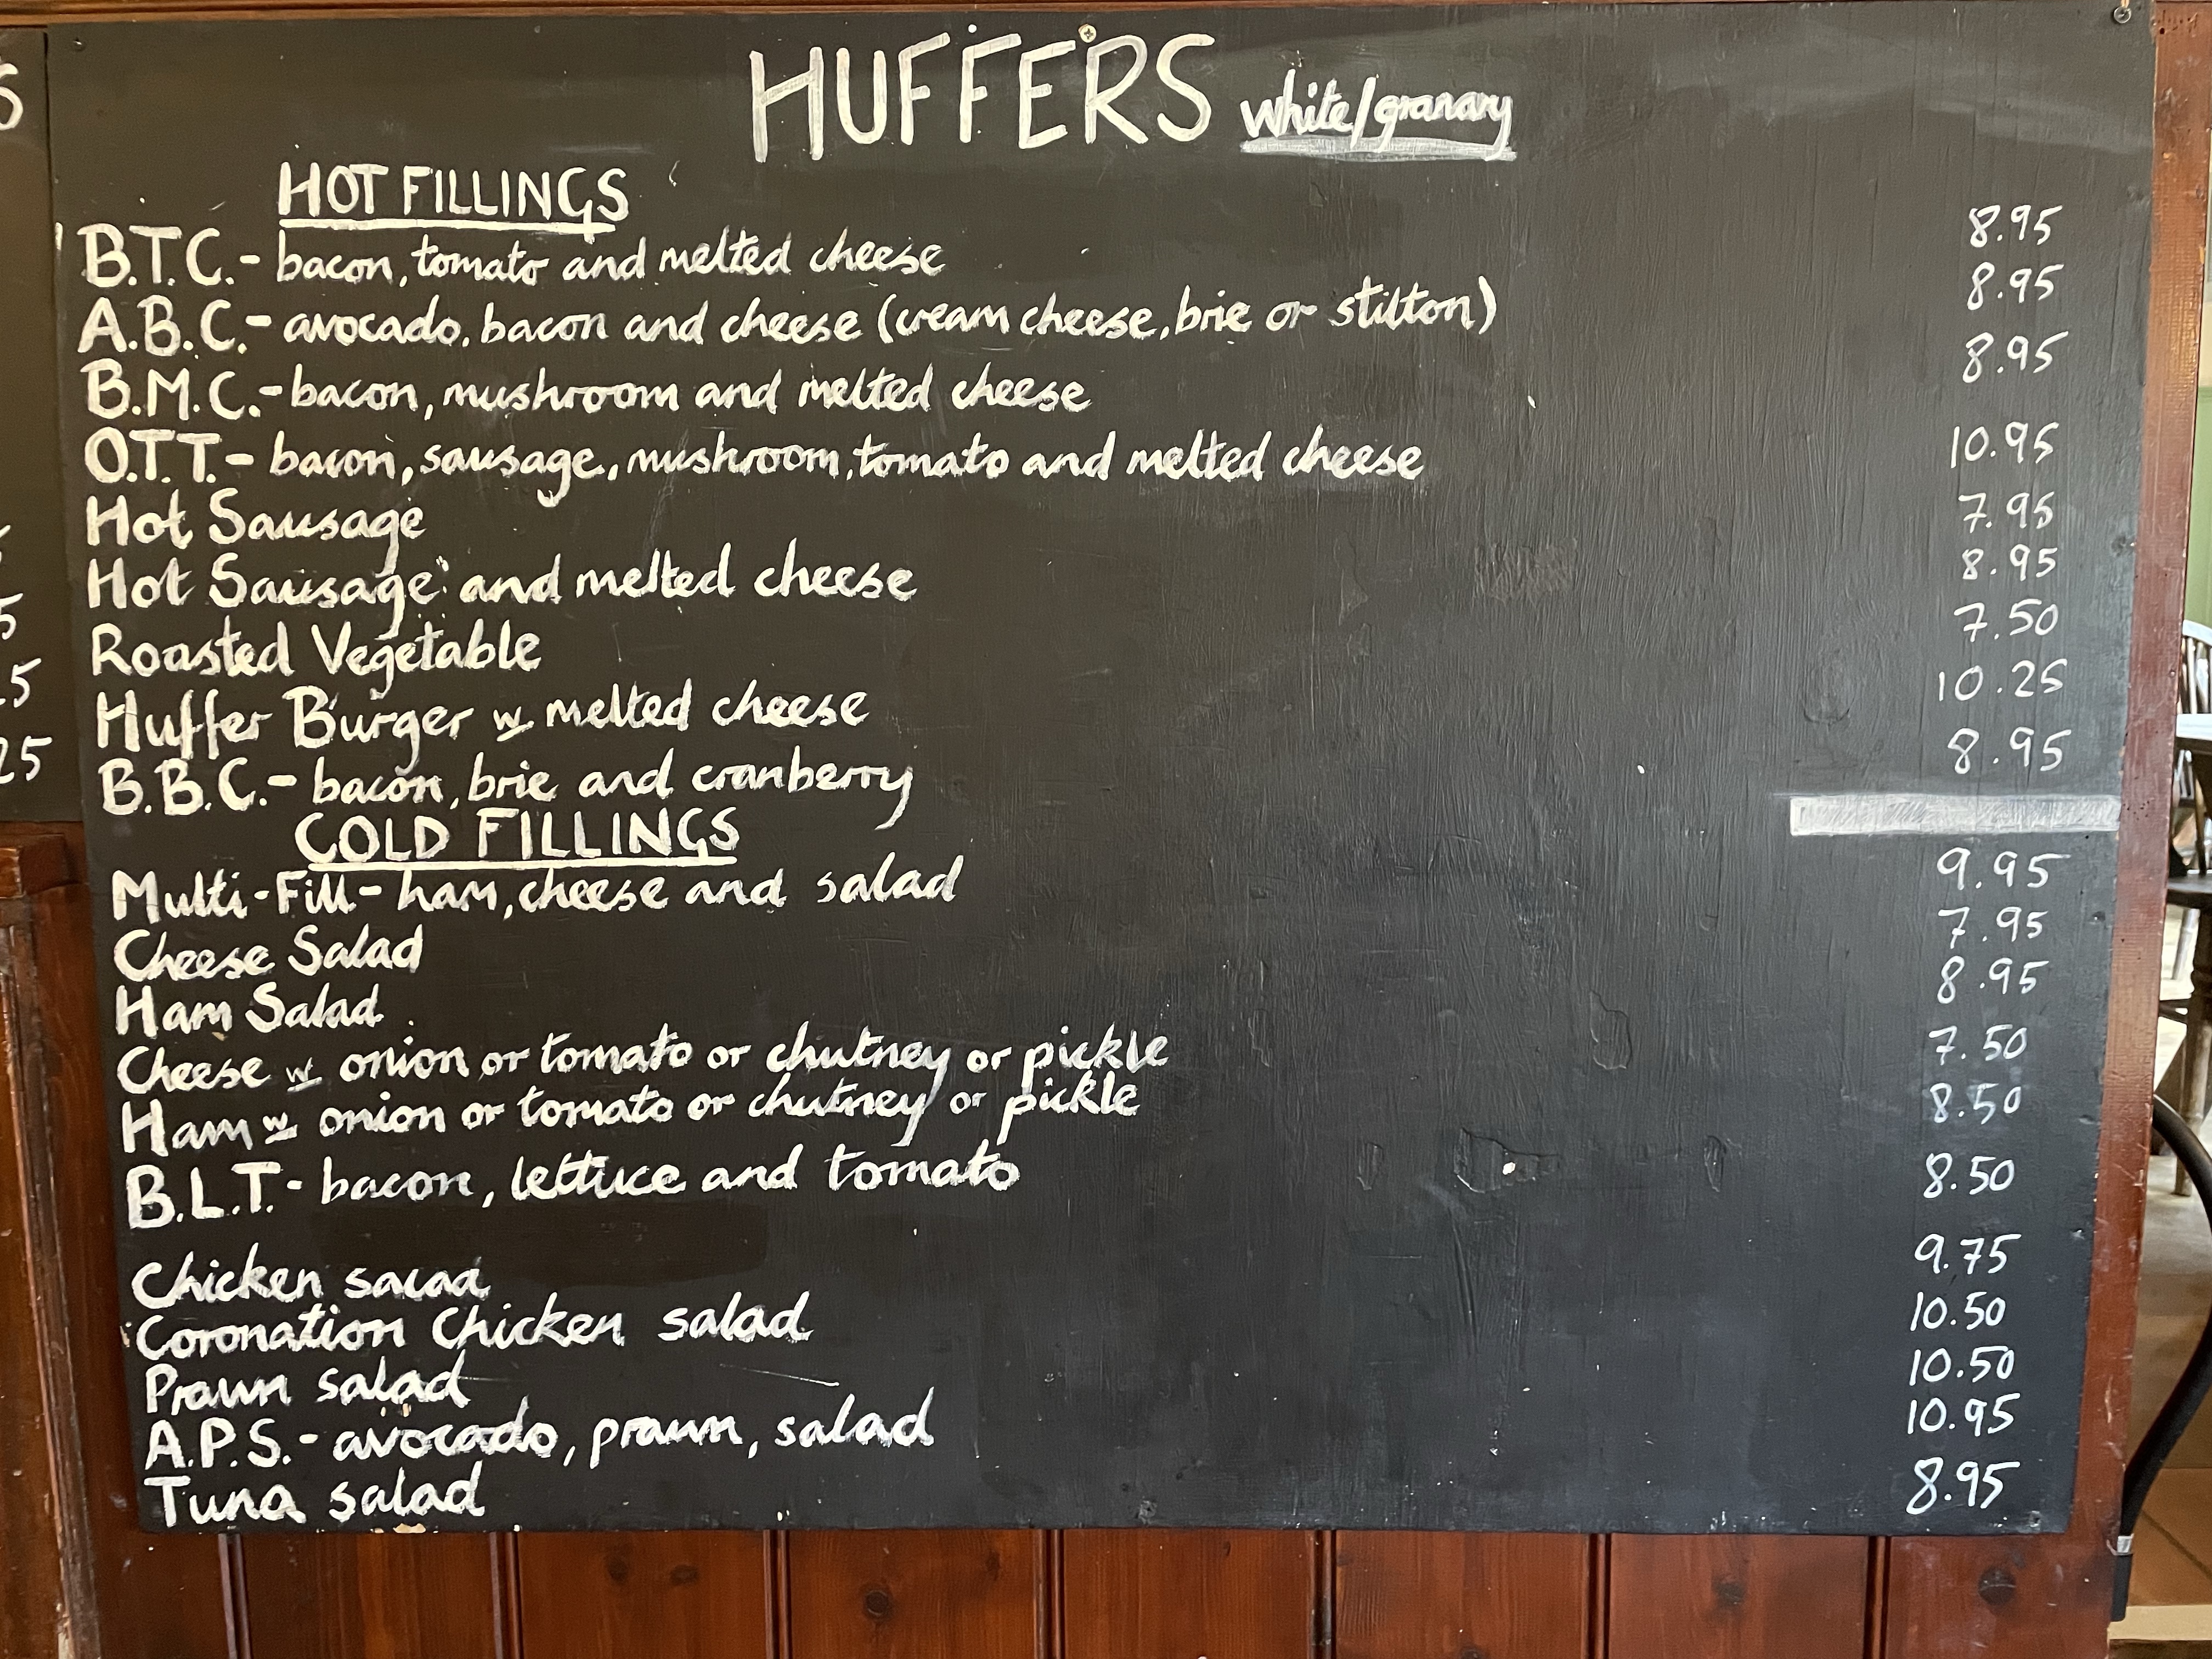 HUFFERS white/granary
HOT FILLINGS
B.T.C.- bacon, tomato and melted cheese 8.95
A.B.C.- avocado, bacon and cheese (cream cheese, brie or stilton) 8.95
B.M.C.- bacon, mushroom and melted cheese 8.95
O.T.T.- bacon, sausage, mushroom, tomato and melted cheese 10.95
Hot Sausage 7.95
Hot Sausage and melted cheese 8.95
Roasted Vegetable 7.50
Huffer Burger w melted cheese 10.25
B.B.C.- bacon, brie and cranberry 8.95
COLD FILLINGS
Multi-Fill- ham, cheese and salad 9.95
Cheese Salad 7.95
Ham Salad 8.95
Cheese w onion or tomato or chutney or pickle 7.50
Ham w onion or tomato or chutney or pickle 8.50
B.L.T.- bacon, lettuce and tomato 8.50
Chicken salad 9.75
Coronation Chicken salad 10.50
Prawn salad 10.50
A.P.S.- avocado, prawn, salad 10.95
Tuna salad 8.95